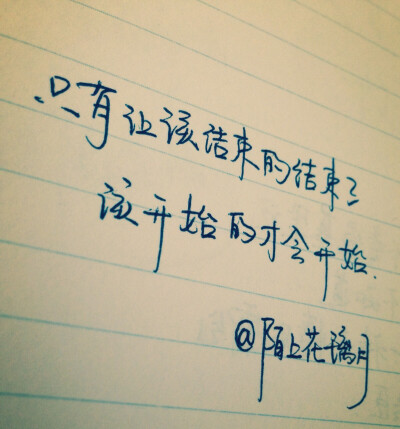 只有让该结束的结束了
该开始的才会开始.
@陌上花璃月